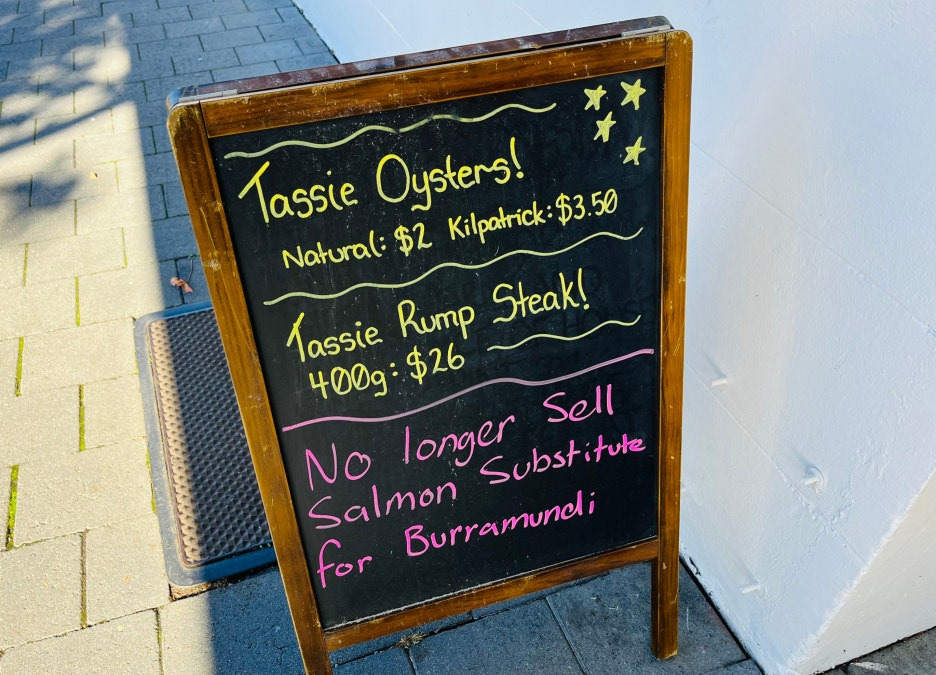 Tassie Oysters!
Natural: $2 Kilpatrick: $3.50
Tassie Rump Steak!
400g: $26
No longer Sell
Salmon Substitute
for Burramundi